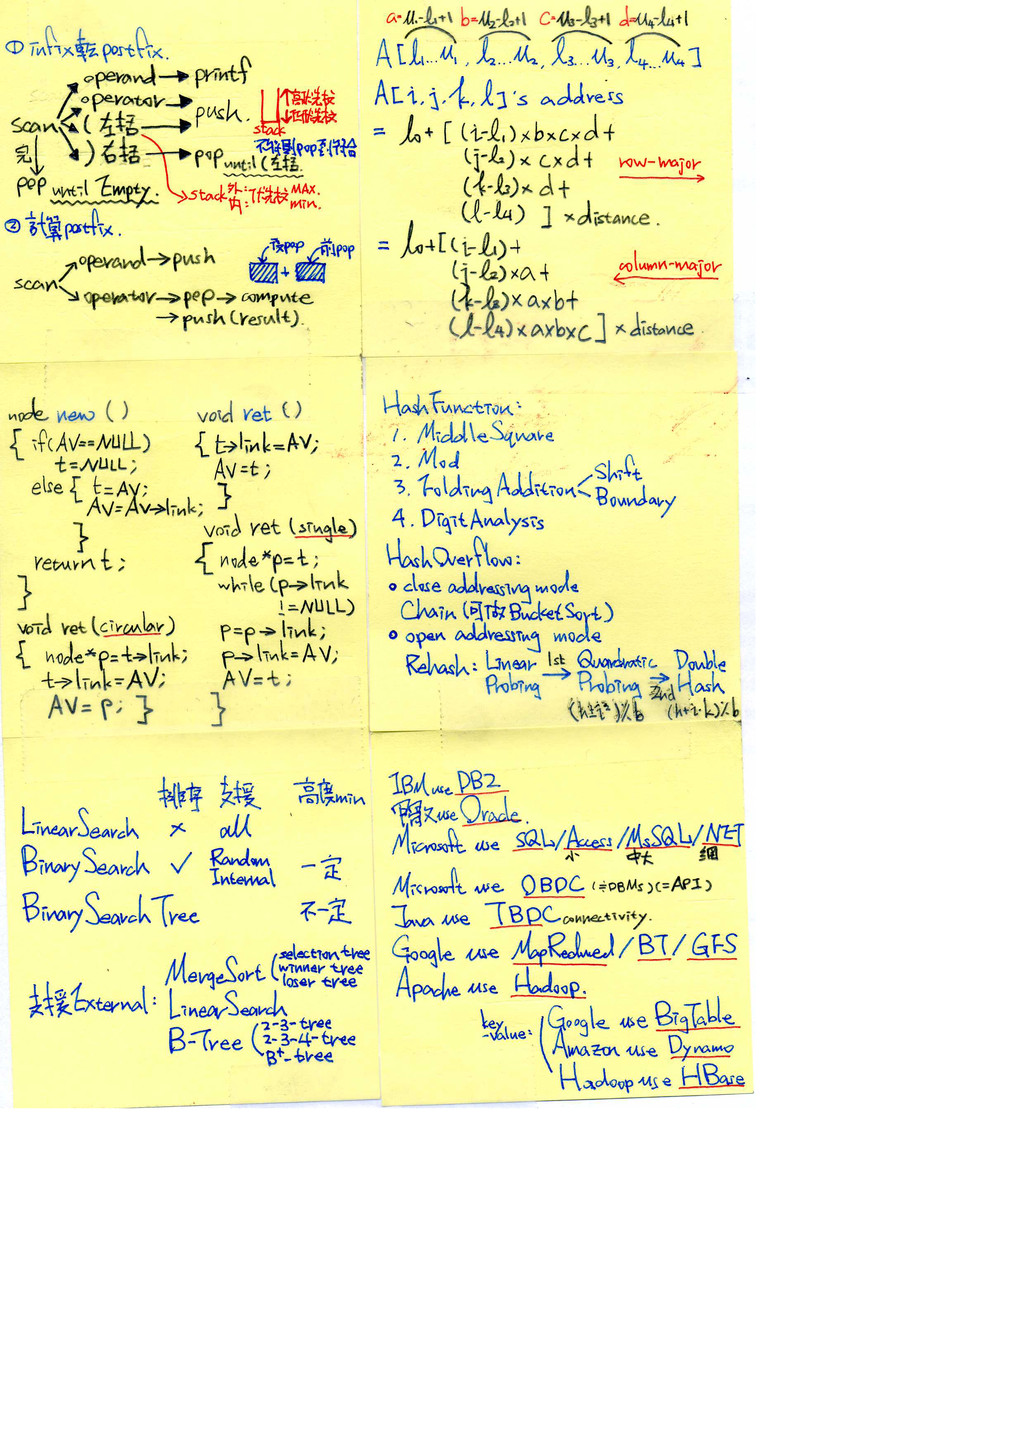 ① infix転postfix.
scan
operand → printf
operator → push.
( 左括
) 右括 → pop until (左括
stack
高優先权
低優先权
完
pop until Empty.
stack 外: 優先权 MAX.
内: min.
② 計算postfix.
scan
operand → push
operator → pop → compute
→ push (result).
後pop + 前pop
a=u₁-l₁+1 b=u₂-l₂+1 c=u₃-l₃+1 d=u₄-l₄+1
A[l₁...u₁, l₂...u₂, l₃...u₃, l₄...u₄]
A[i, j, k, l]'s address
= l₀+ [ (i-l₁)×b×c×d+
(j-l₂)×c×d+
(k-l₃)×d+
(l-l₄) ] ×distance.
row-major
= l₀+[(i-l₁)+
(j-l₂)×a+
(k-l₃)×a×b+
(l-l₄)×a×b×c] ×distance.
column-major
node new ()
{ if(AV==NULL)
t=NULL;
else { t=AV;
AV=AV→link;
}
return t;
}
void ret (circular)
{ node*p=t→link;
t→link=AV;
AV=p; }
void ret ()
{ t→link=AV;
AV=t;
}
void ret (single)
{ node*p=t;
while (p→link
!=NULL)
p=p→link;
p→link=AV;
AV=t;
}
HashFunction:
1. MiddleSquare
2. Mod
3. FoldingAddition
Shift
Boundary
4. DigitAnalysis
HashOverflow:
○ close addressing mode
Chain (可做BucketSort)
○ open addressing mode
Rehash: Linear Probing 1st → Quardratic Probing 2nd → Double Hash
(h±i²)%b (h+i·k)%b
排序 支援 高度min
LinearSearch × all
BinarySearch ✓ Random Internal 一定
BinarySearchTree 不一定
支援External:
MergeSort (selection tree
winner tree
loser tree
LinearSearch
B-Tree (2-3-tree
2-3-4-tree
B⁺-tree
IBM use DB2
use Oracle.
Microsoft use SQL/Access/MsSQL/NET
小 中大 網
Microsoft use OBDC (≒DBMS)(=API)
Java use TBDC connectivity.
Google use MapReduced/BT/GFS
Apache use Hadoop.
key-value:
Google use BigTable
Amazon use Dynamo
Hadoop use HBase